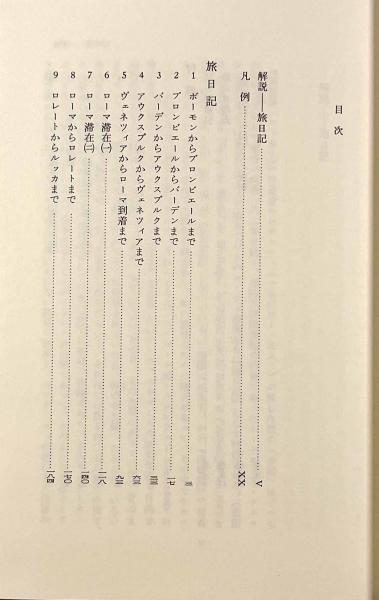 目次
解説──旅日記……V
凡例……XX
旅日記
1 ボーモンからプロンビエールまで……三
2 プロンビエールからバーデンまで……一七
3 バーデンからアウクスブルクまで……三三
4 アウクスブルクからヴェネツィアまで……六三
5 ヴェネツィアからローマ到着まで……九三
6 ローマ滞在(一)……一一八
7 ローマ滞在(二)……一四〇
8 ローマからロレートまで……一七〇
9 ロレートからルッカまで……一八四